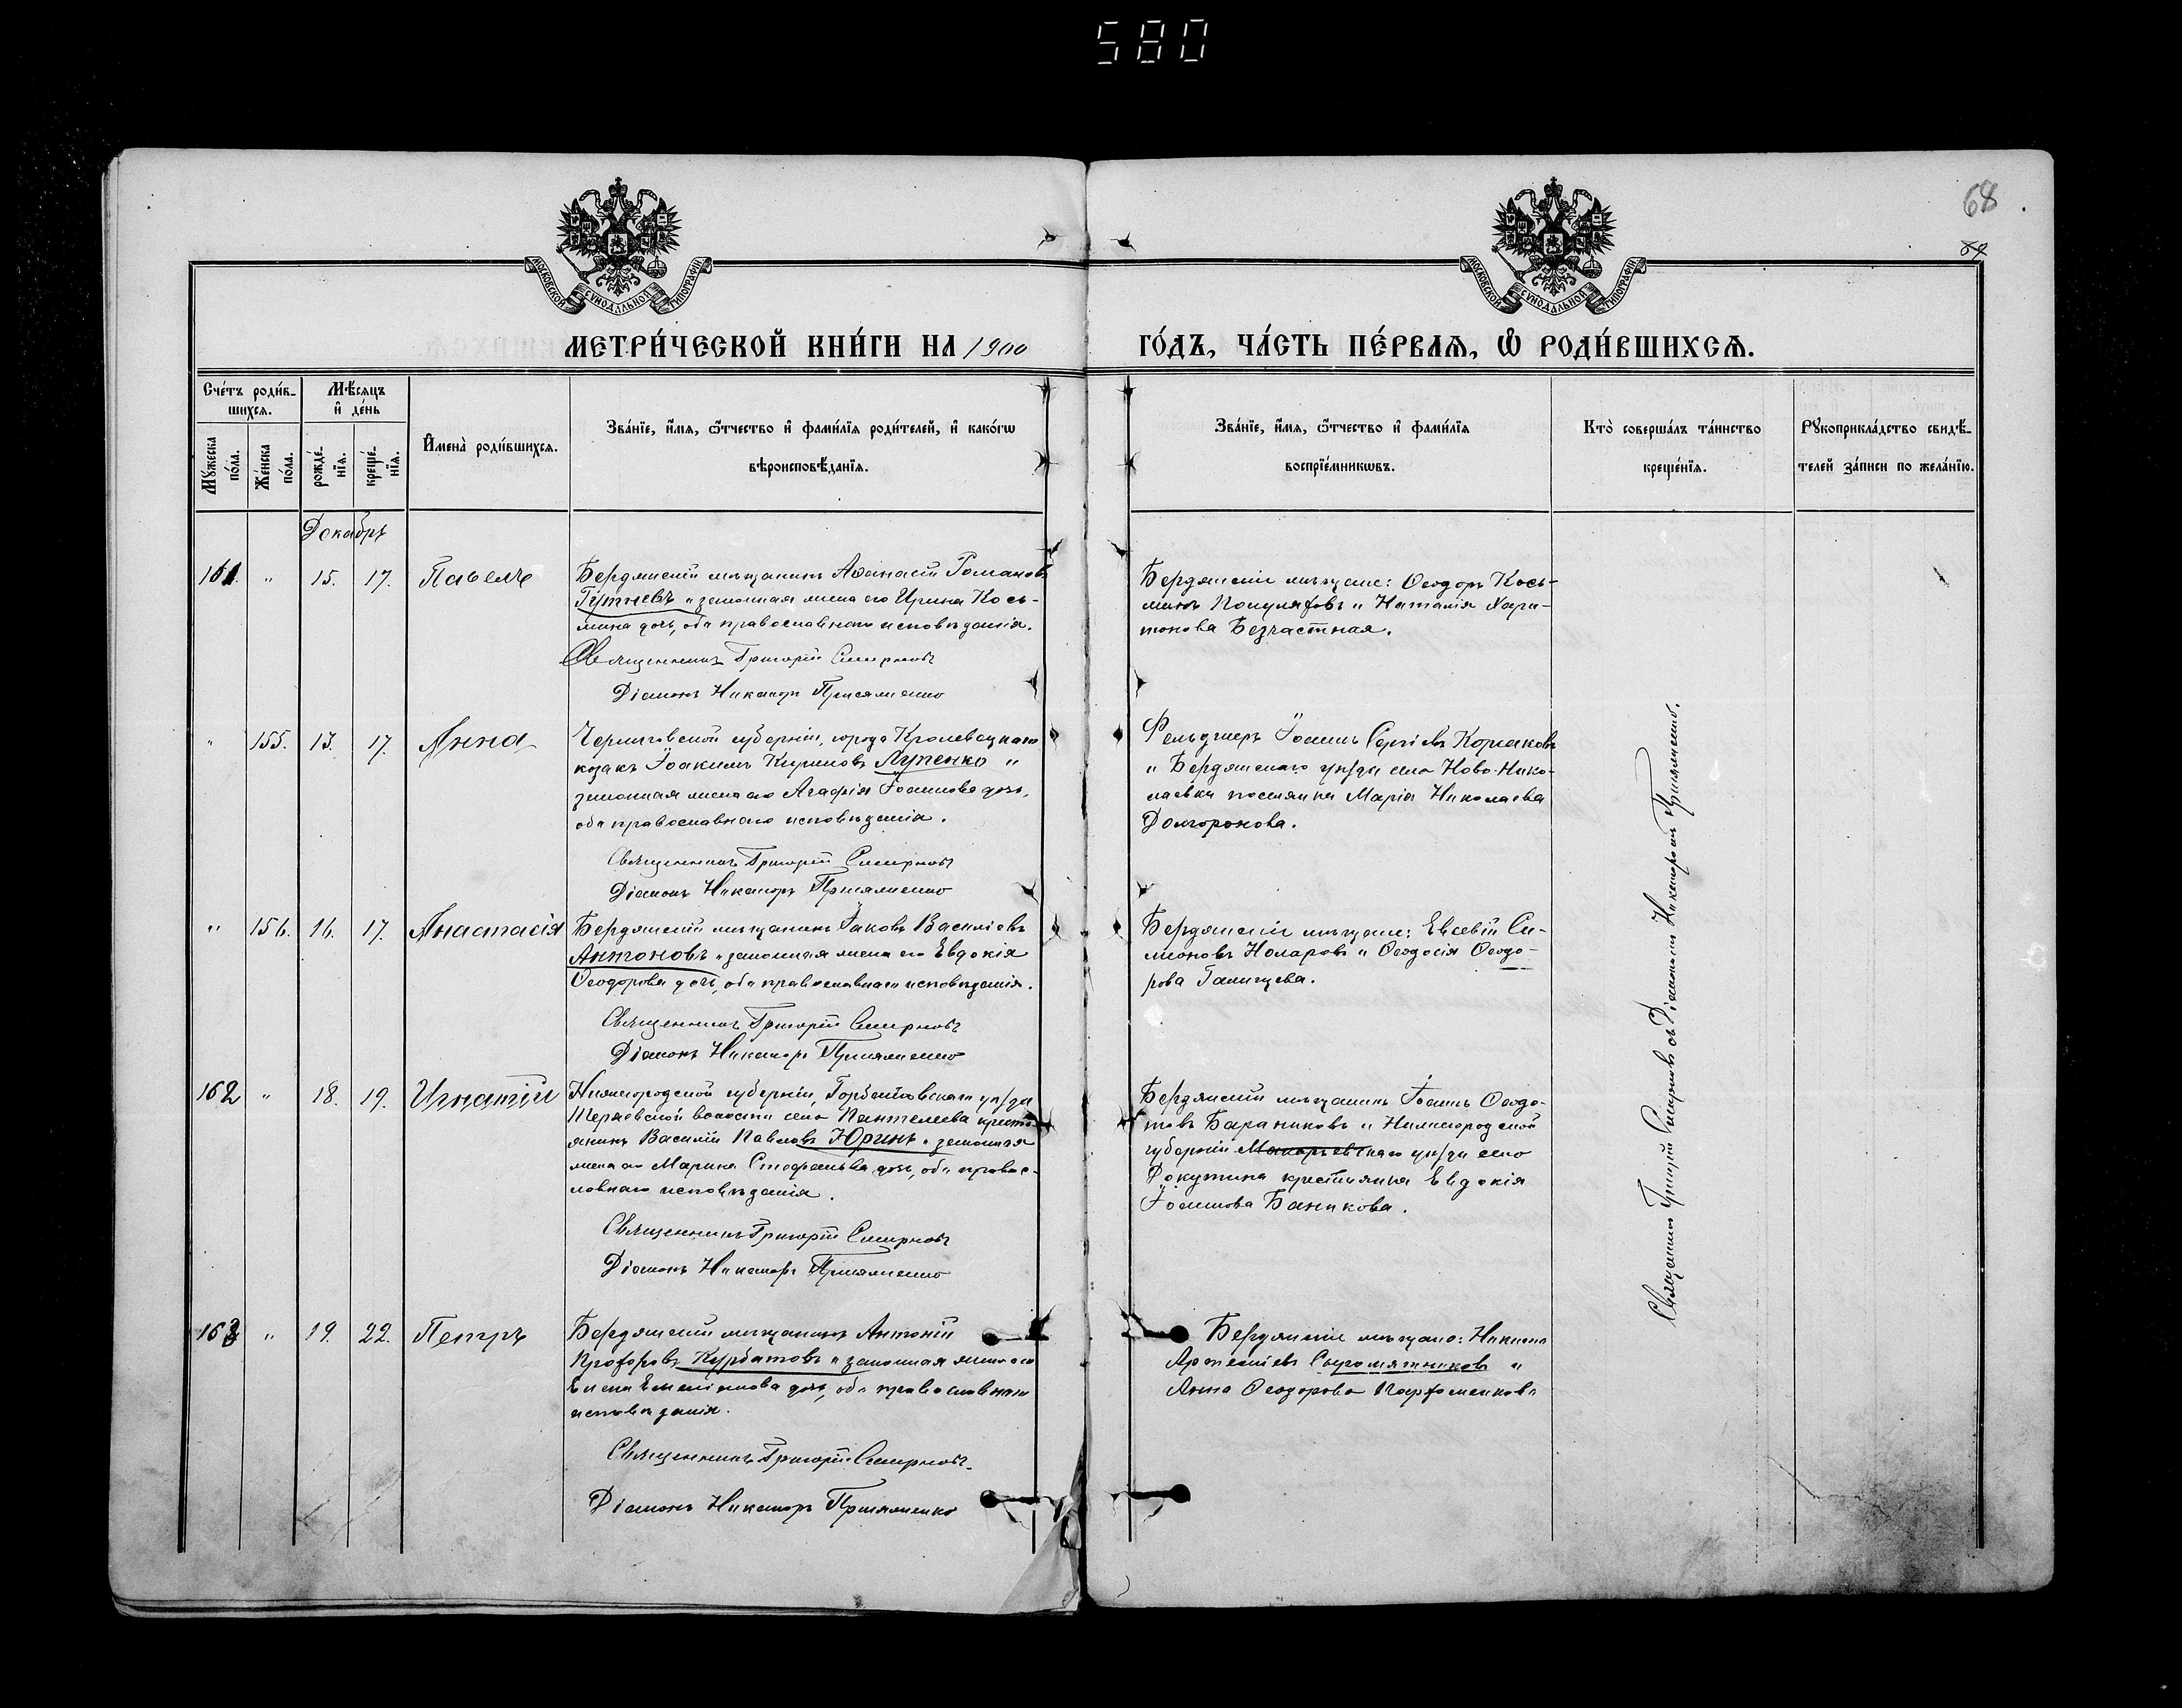 580
68
МОСКОВСКОЙ СУНОДАЛЬНОЙ ТИПОГРАФIИ
МОСКОВСКОЙ СУНОДАЛЬНОЙ ТИПОГРАФIИ
МЕТРИ́ЧЕСКОЙ КНИ́ГИ НА 1900
ГО́ДЪ, ЧА́СТЬ ПЕ́РВАѦ, Ѡ҆ РОДИ́ВШИХСѦ.
Сче́тъ роди́в-
шихсѧ.
Мꙋжеска по́ла.
Же́нска по́ла.
Мѣ́сяцъ
и҆ де́нь
рожде́-нїѧ.
креще́-нїѧ.
И҆мена̀ роди́вшихсѧ.
Зва́нїе, и҆́мѧ, ѻ҆́тчество и҆ фами́лїѧ роди́телей, и҆ како́гѡ
вѣроисповѣ́данїѧ.
Зва́нїе, и҆́мѧ, ѻ҆́тчество и҆ фами́лїѧ
воспрїе́мникѡвъ.
Кто̀ соверша́лъ та́инство
креще́нїѧ.
Рꙋкоприкла́дство свидѣ́-
телей за́писи по жела́нїю.
Декабрь
161. " 15. 17. Павелъ
Бердянскій мѣщанинъ Аѳанасій Романовъ
Гутневъ и законная жена его Ирина Кось-
мина дочь, оба православнаго исповѣданія.
Священникъ Григорій Смирновъ
Діаконъ Никаноръ Присяженко
Бердянскіе мѣщане: Ѳеодоръ Кось-
минъ и Наталія Хари-
тонова Безчастная.
" 155. 13. 17. Анна
Черниговской губерніи, города Кролевецкаго
козакъ Іоакимъ Кириловъ Лупенко и
законная жена его Агафія Іоаннова дочь,
оба православнаго исповѣданія.
Священникъ Григорій Смирновъ
Діаконъ Никаноръ Присяженко
Фельдшеръ Іоаннъ Сергіевъ Корсаковъ
и Бердянскаго уѣзда села Ново-Нико-
лаевки поселянка Марія Николаева
Долгорокова.
" 156. 16. 17. Анастасія
Бердянскій мѣщанинъ Іаковъ Василіевъ
Антоновъ и законная жена его Евдокія
Ѳеодорова дочь, оба православнаго исповѣданія.
Священникъ Григорій Смирновъ
Діаконъ Никаноръ Присяженко
Бердянскіе мѣщане: Евсевій Си-
меоновъ и Ѳеодосія Ѳеодо-
рова Галицева.
162 " 18. 19. Игнатій
Нижегородской губерніи, Горбатовскаго уѣзда
волости села Пантелеева кресть-
янинъ Василій Павловъ Юринъ и законная
жена его Марина Стефанова дочь, оба правос-
лавнаго исповѣданія.
Священникъ Григорій Смирновъ
Діаконъ Никаноръ Присяженко
Бердянскій мѣщанинъ Іоаннъ Ѳеодо-
товъ Бараниковъ и Нижегородской
губерніи Макарьевскаго уѣзда села
Докутина крестьянка Евдокія
Іоаннова Баникова.
163 " 19. 22. Петръ
Бердянскій мѣщанинъ Антоній
Прохоровъ Курбатовъ и законная жена его
Елена Емеліанова дочь, оба православнаго
исповѣданія.
Священникъ Григорій Смирновъ
Діаконъ Никаноръ Присяженко
Бердянскіе мѣщане: Никита
Артеміевъ Сыромятниковъ и
Анна Ѳеодорова Парфоменкова
Священникъ Григорій Смирновъ съ Діакономъ Никаноромъ Присяженко.